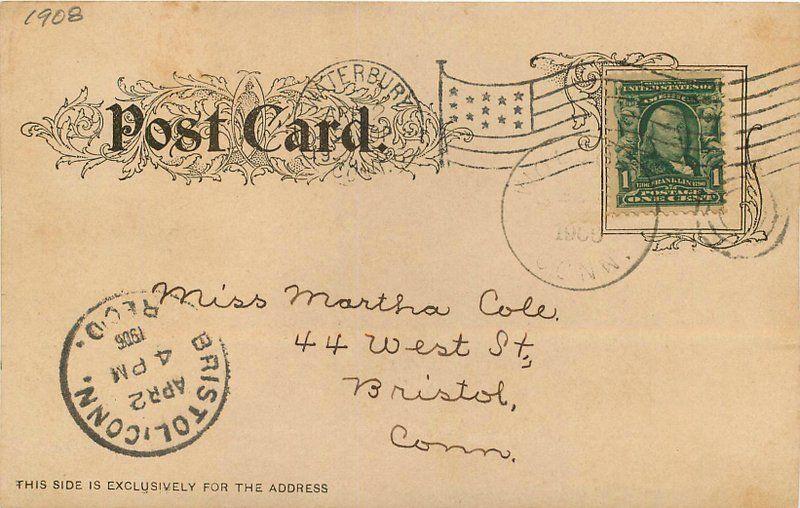 1908
Post Card.
WATERBURY
CONN.
UNITED STATES OF
AMERICA
1 1
FRANKLIN
POSTAGE
ONE CENT
CONN.
Miss Martha Cole.
44 West St.,
Bristol,
Conn.
BRISTOL, CONN.
APR 2
4 PM
1906
REC'D.
THIS SIDE IS EXCLUSIVELY FOR THE ADDRESS